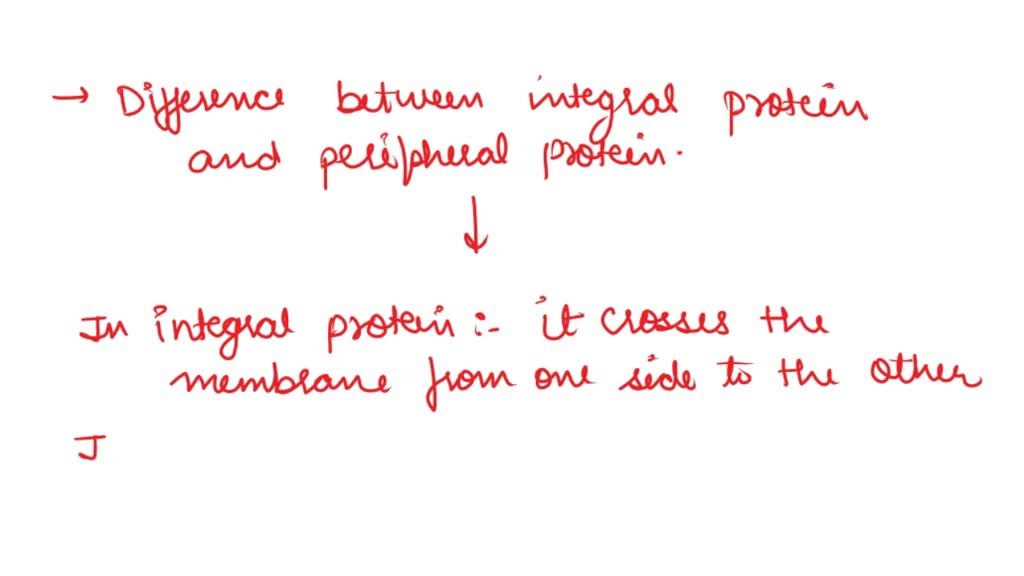 → Difference between integral protein
and peripheral protein.
↓
In integral protein :- it crosses the
membrane from one side to the other
I